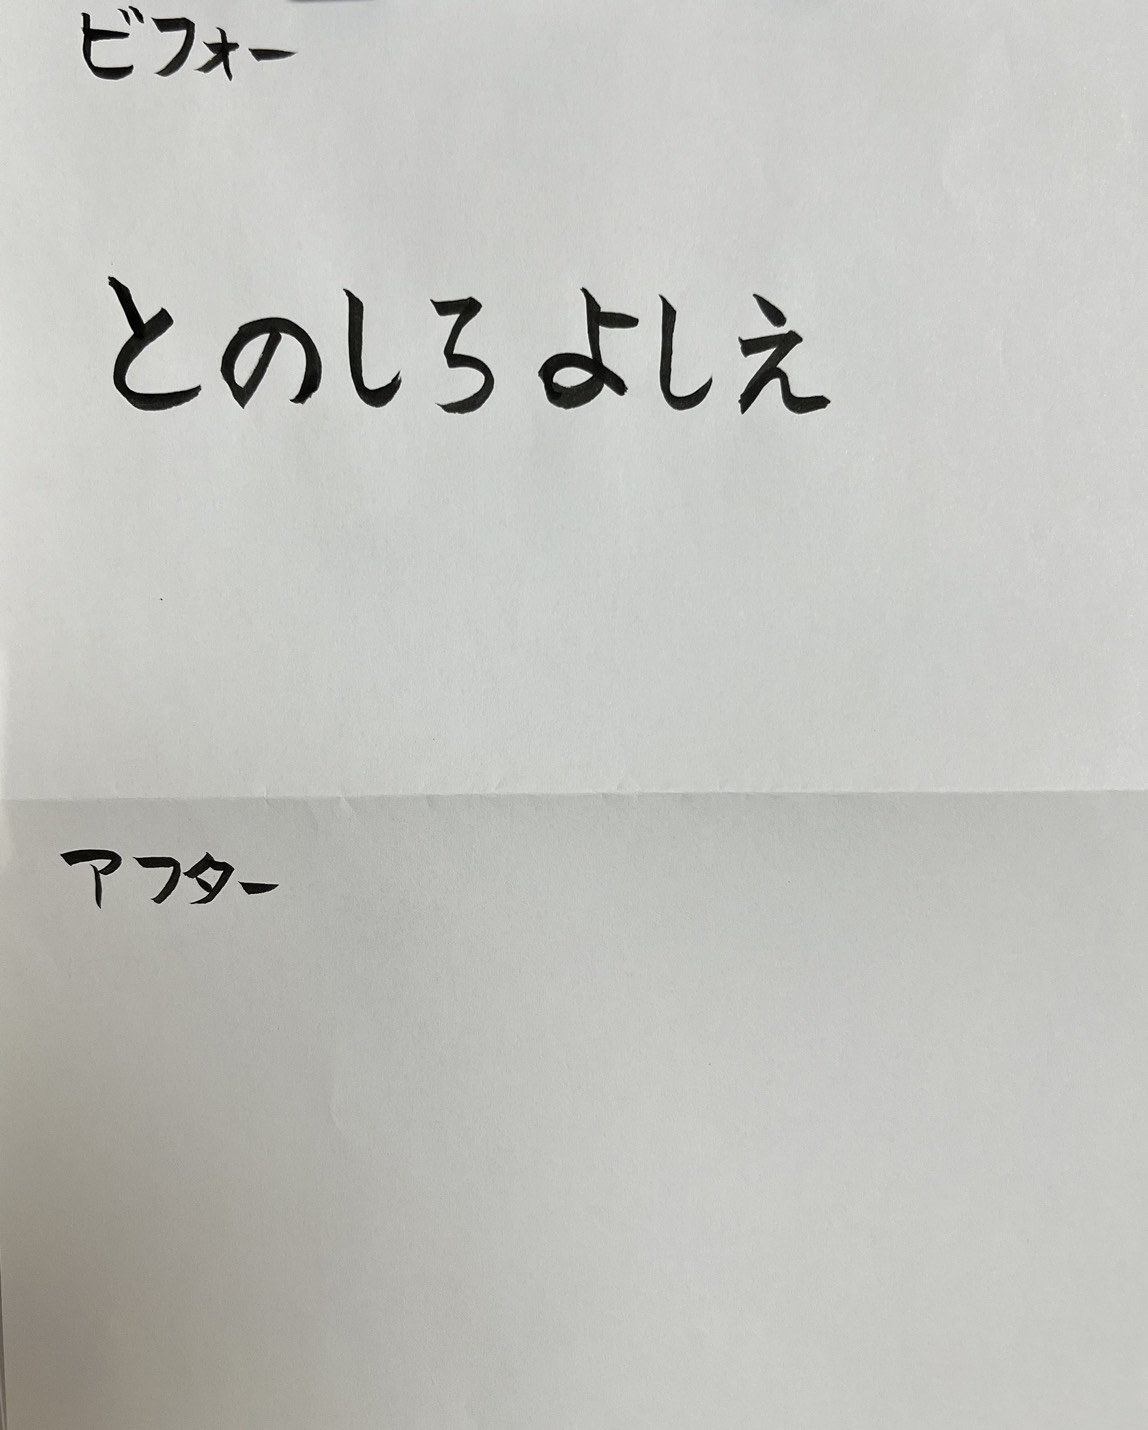 ビフォー
とのしろ よしえ
アフター